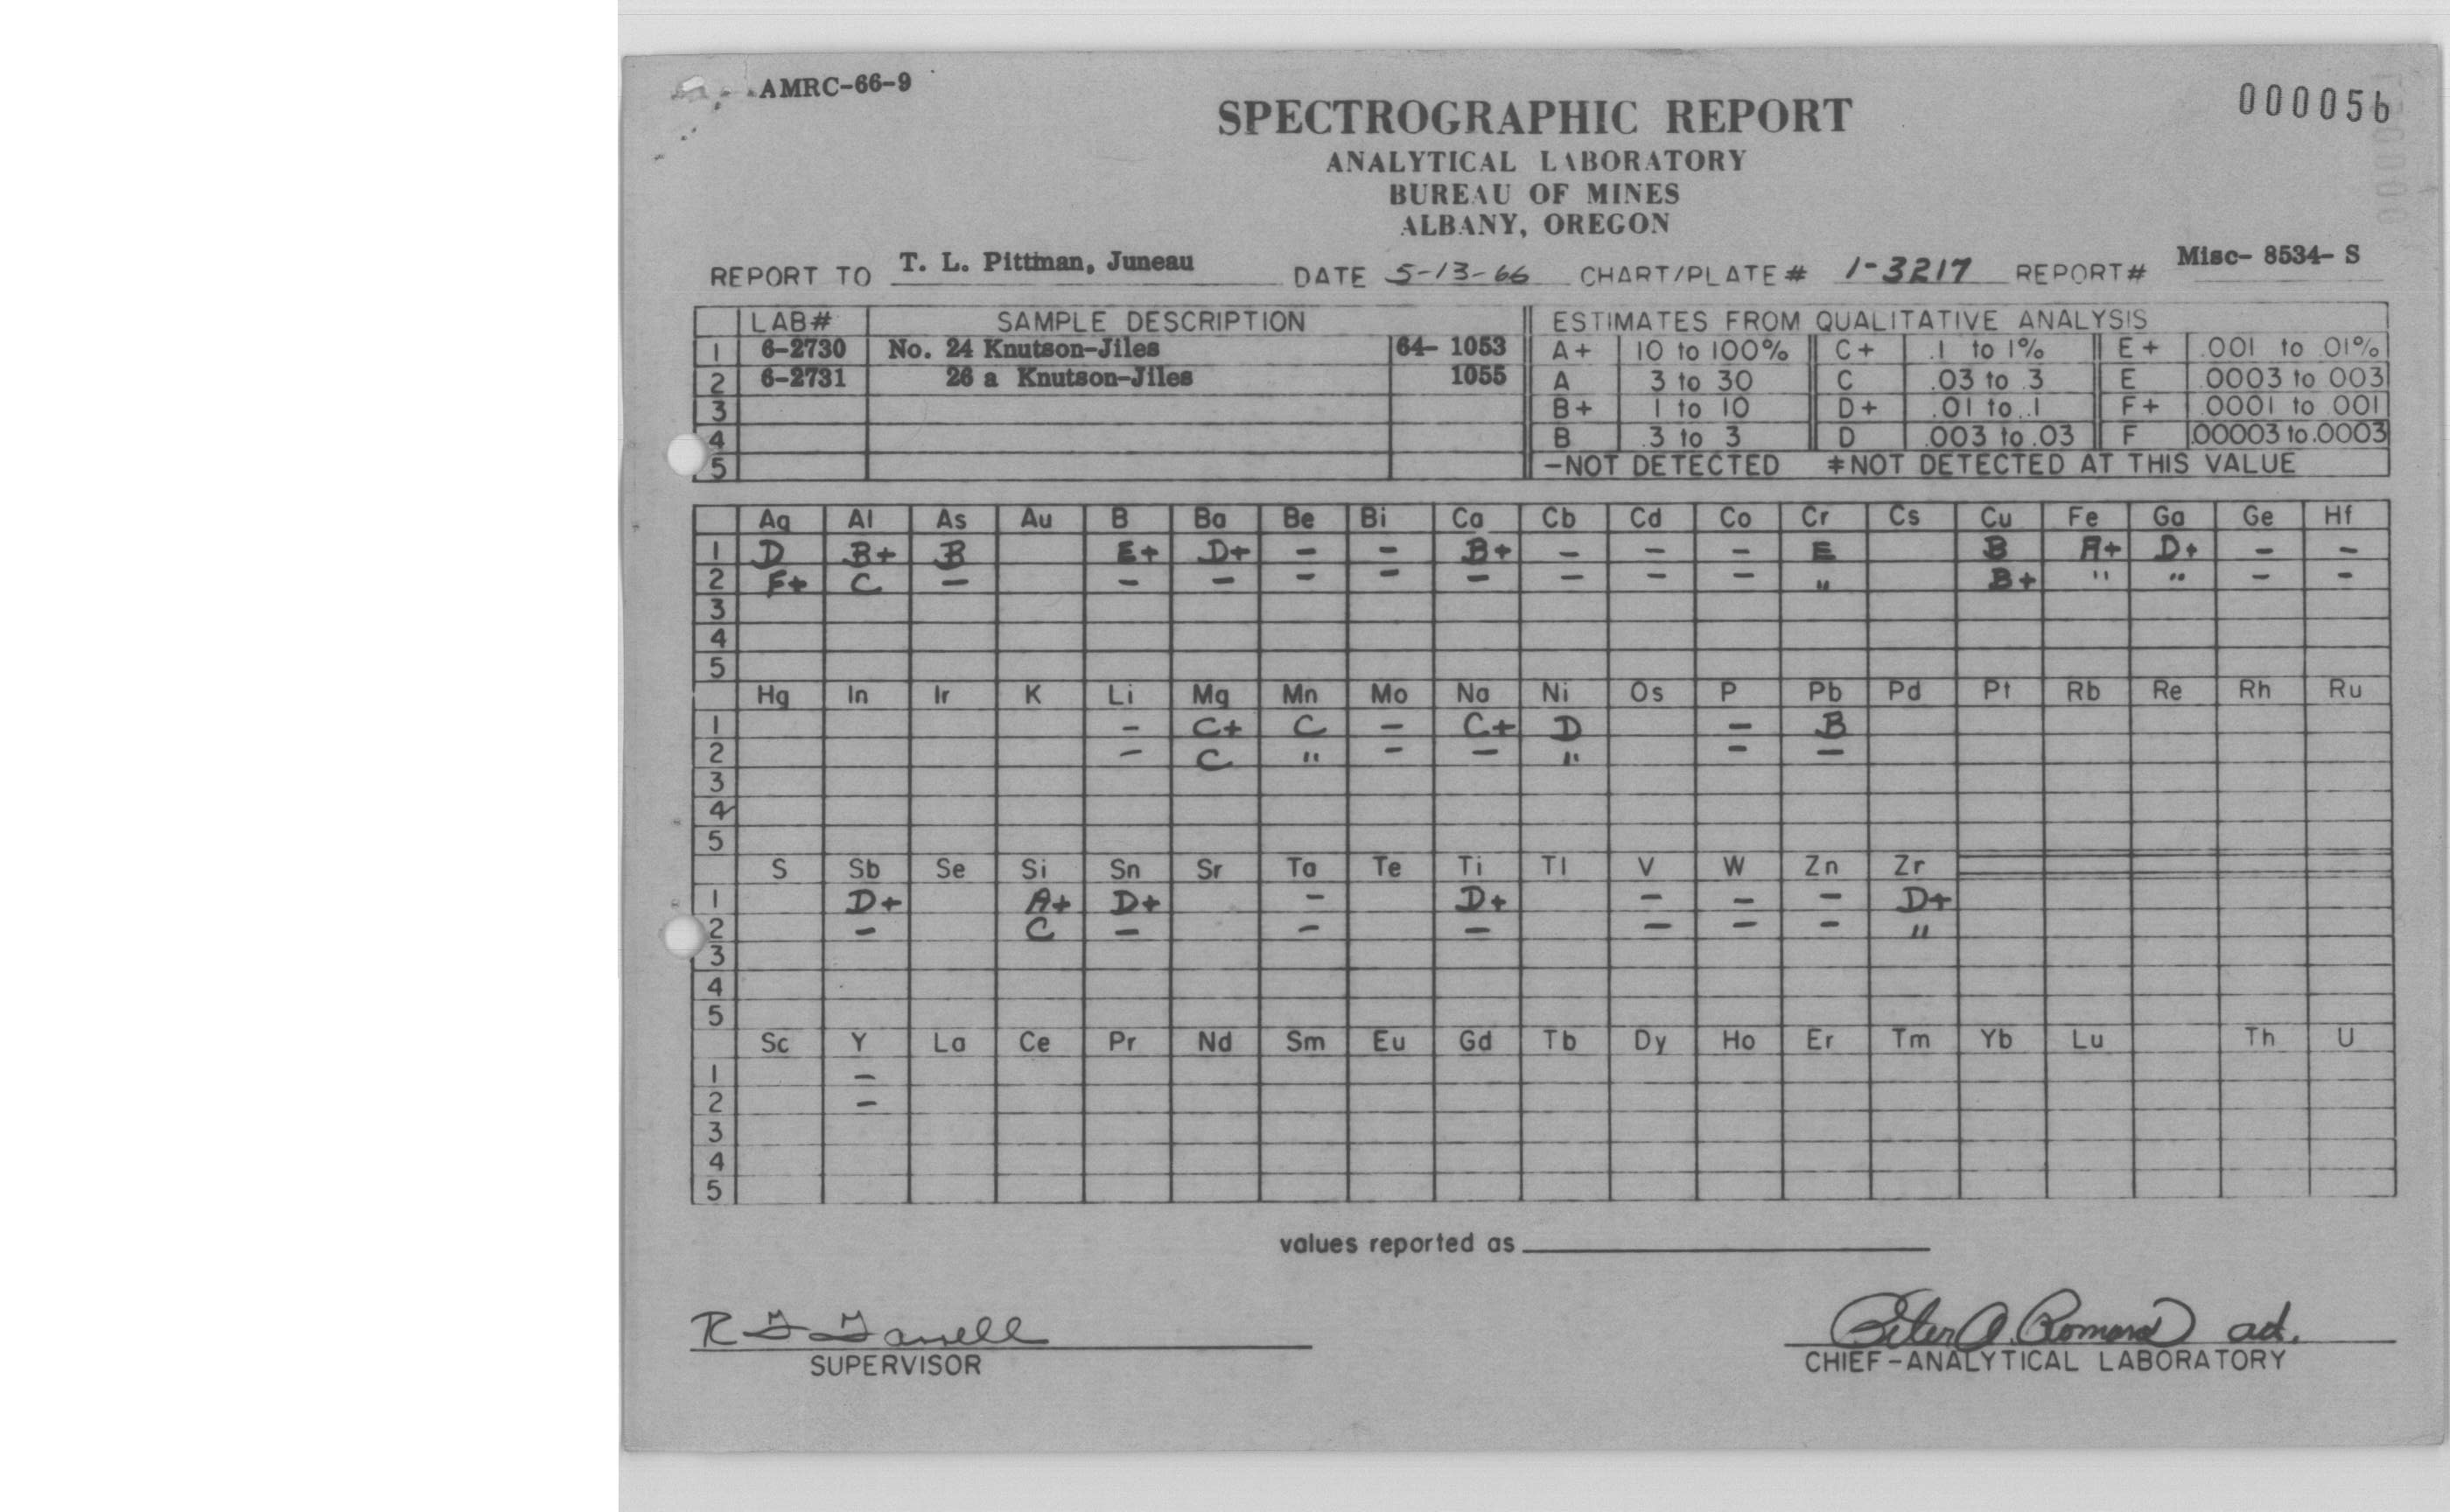 AMRC-66-9
000056
SPECTROGRAPHIC REPORT
ANALYTICAL LABORATORY
BUREAU OF MINES
ALBANY, OREGON
REPORT TO T. L. Pittman, Juneau DATE 5-13-66 CHART/PLATE# 1-3217 REPORT# Misc- 8534- S
LAB# SAMPLE DESCRIPTION ESTIMATES FROM QUALITATIVE ANALYSIS
1 6-2730 No. 24 Knutson-Jiles 64- 1053 A+ 10 to 100% C+ .1 to 1% E+ .001 to .01%
2 6-2731 26 a Knutson-Jiles 1055 A 3 to 30 C .03 to .3 E .0003 to 003
3 B+ 1 to 10 D+ .01 to .1 F+ .0001 to 001
4 B .3 to 3 D .003 to .03 F .00003 to .0003
5 -NOT DETECTED ≠NOT DETECTED AT THIS VALUE
Ag Al As Au B Ba Be Bi Ca Cb Cd Co Cr Cs Cu Fe Ga Ge Hf
1 D B+ B E+ D+ - - B+ - - - E B A+ D+ - -
2 F+ C - - - - - - - - - " B+ " " - -
3
4
5
Hg In Ir K Li Mg Mn Mo Na Ni Os P Pb Pd Pt Rb Re Rh Ru
1 - C+ C - C+ D - B
2 - C " - - " - -
3
4
5
S Sb Se Si Sn Sr Ta Te Ti Tl V W Zn Zr
1 D+ A+ D+ - D+ - - - D+
2 - C - - - - - - "
3
4
5
Sc Y La Ce Pr Nd Sm Eu Gd Tb Dy Ho Er Tm Yb Lu Th U
1 -
2 -
3
4
5
values reported as
SUPERVISOR
Peter O. Romans act.
CHIEF-ANALYTICAL LABORATORY